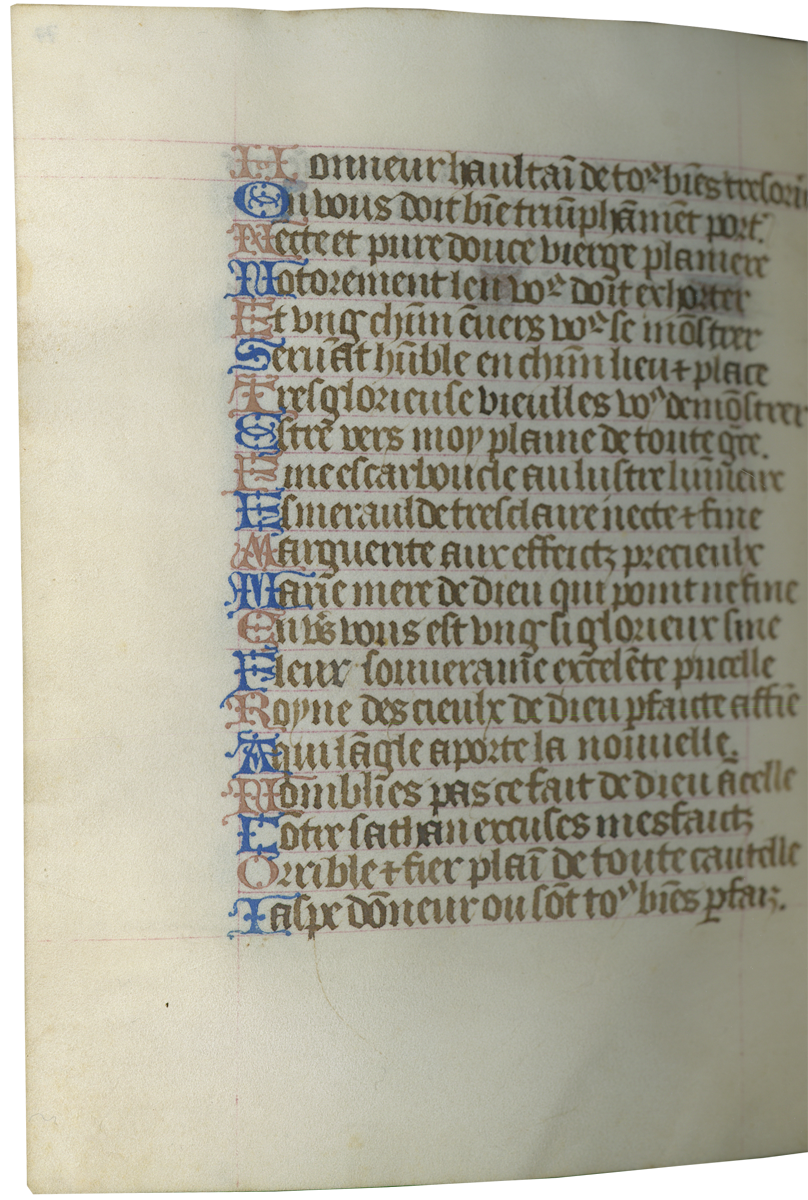 Honneur haultaī de toꝰ biēs tresorie
On vous doit biē triūphāmēt port'
Necte et pure douce vierge planiere
Notorement leu voꝰ doit exhorter
Et vng chūn ēuers voꝰ se mōstrer
Seruāt hūble en chūn lieu ⁊ place
Tresglorieuse vieulles voꝰ demōstrer
Estre vers moy plaine de toute gr̄e.
Fine escarboucle au lustre lumīere
Esmeraulde tresclaire necte ⁊ fine
Marguerite aux effectz precieulx
Marie mere de dieu qui point ne fine
En vous est vng si glorieux sine
Fleur souueraine excelēte pucelle
Royne des cieulx de dieu pfaicte affie
A qui lāgle aporte la nouuelle.
Nōmbliēs pas ce fait de dieu ācelle
Cōtre sathan excuses mesfaictz
Orrible ⁊ fier plaī de toute cautelle
Iaspe dōneur ou sōt toꝰ biēs ꝑfaiz.